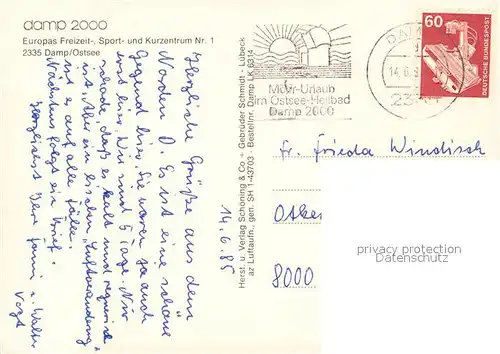 damp 2000
Europas Freizeit-, Sport- und Kurzentrum Nr. 1
2335 Damp/Ostsee
Herzliche Grüße aus dem
Norden D. Es ist eine schöne
Gegend hier. Sie waren ja auch
mal hier. Wir sind 5 Tage. Nur
schade, daß es kalt und regnerisch
ist. Aber ein bisschen "Luftveränderung"
ist es auf alle Fälle.
Nächstens folgt ein Brief.
Herzlichst Ihre
u. Walter
Vogt
14.6.85
Herst. u. Verlag Schöning & Co + Gebrüder Schmidt - Lübeck
az Luftaufn., gen. SH 1-43703 - Bestellnr. Damp LK 6314
Meer-Urlaub
im Ostsee-Heilbad
Damp 2000
14.6.8
60
DEUTSCHE BUNDESPOST
Fr. Frieda Windisch
8000
privacy protection
Datenschutz